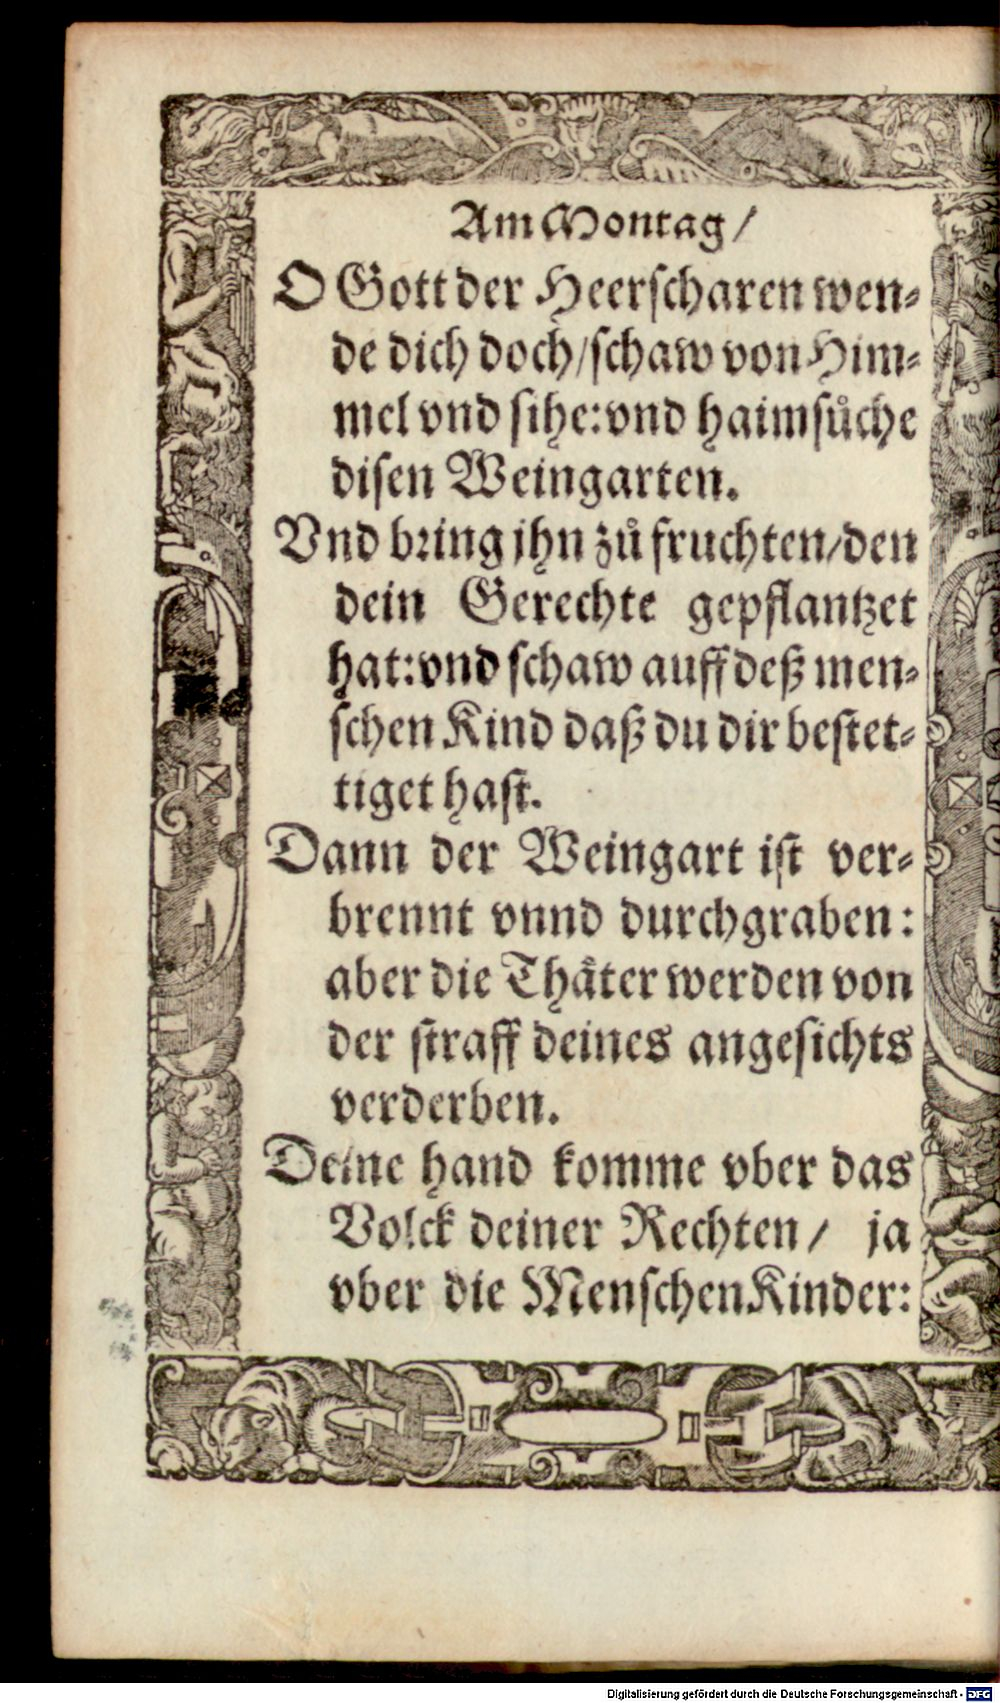 Am Montag/
O Gott der Heerscharen wen⸗
de dich doch/schaw von Him⸗
mel vnd sihe: vnd haimsůche
disen Weingarten.
Vnd bring jhn zů fruchten/den
dein Gerechte gepflantzet
hat: vnd schaw auff deß men⸗
schen Kind daß du dir bestet⸗
tiget hast.
Dann der Weingart ist ver⸗
brennt vnnd durchgraben:
aber die Thäter werden von
der straff deines angesichts
verderben.
Deine hand komme vber das
Volck deiner Rechten/ ja
vber die Menschen Kinder:
Digitalisierung gefördert durch die Deutsche Forschungsgemeinschaft - DFG